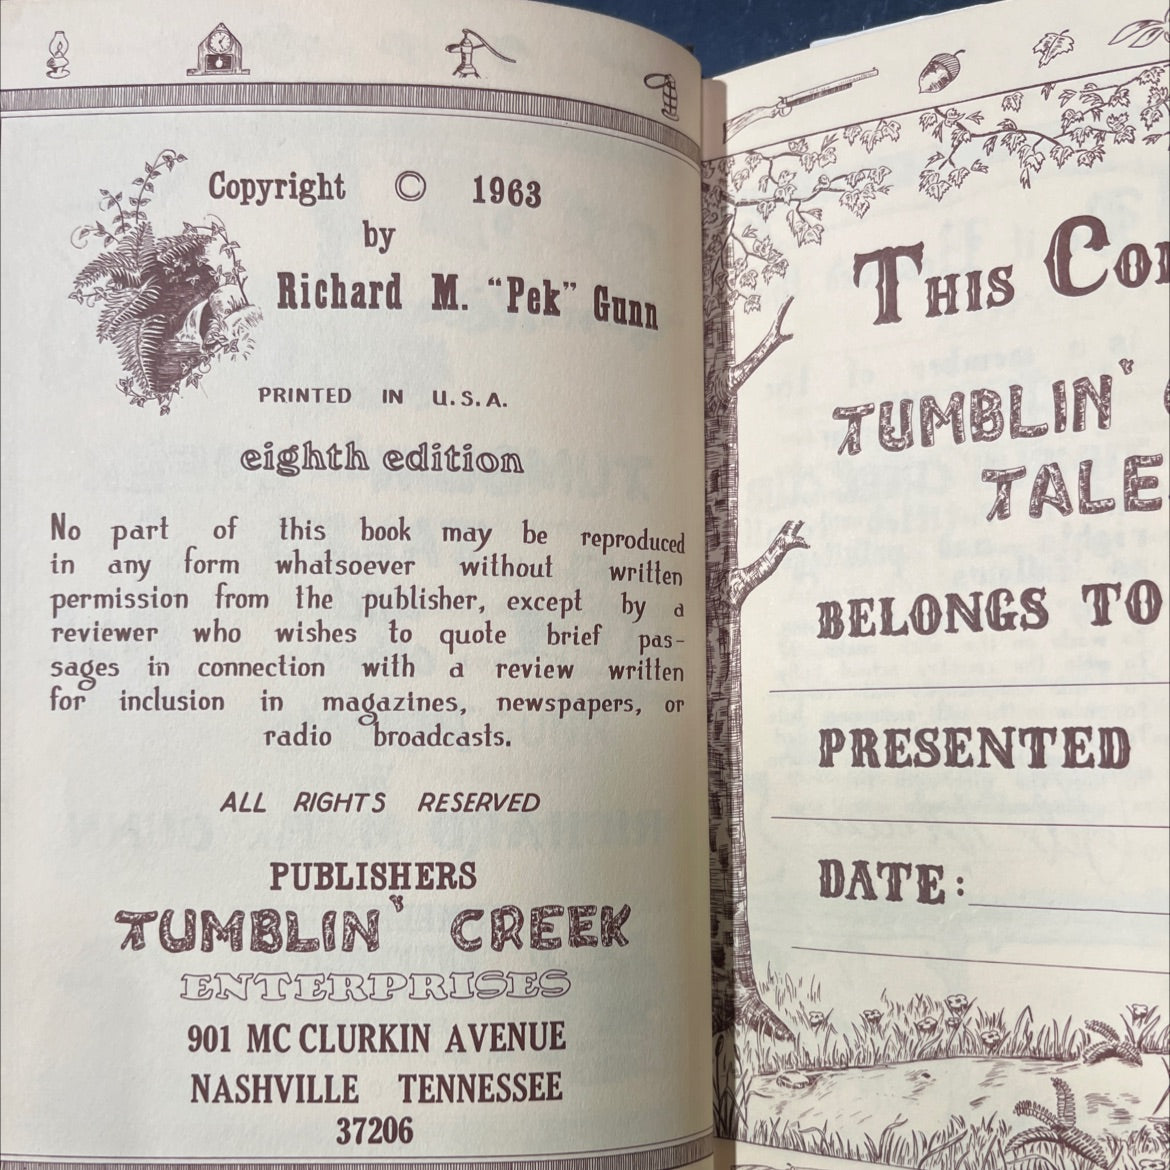 Copyright © 1963
by
Richard M. "Pek" Gunn
PRINTED IN U.S.A.
eighth edition
No part of this book may be reproduced
in any form whatsoever without written
permission from the publisher, except by a
reviewer who wishes to quote brief pas-
sages in connection with a review written
for inclusion in magazines, newspapers, or
radio broadcasts.
ALL RIGHTS RESERVED
PUBLISHERS
TUMBLIN' CREEK
ENTERPRISES
901 MC CLURKIN AVENUE
NASHVILLE TENNESSEE
37206
THIS
TUMBLIN'
TALE
BELONGS TO
PRESENTED
DATE: